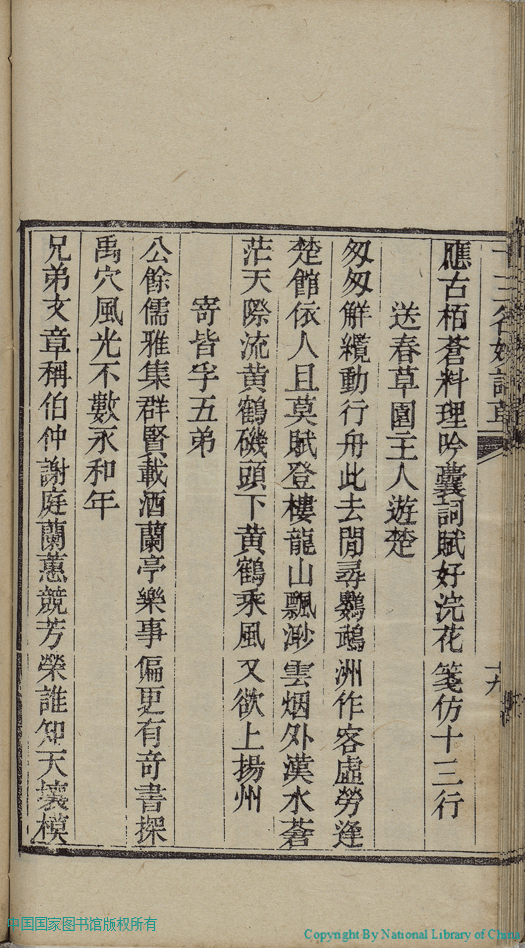 十三名媛詩草
十九
應古栢蒼料理吟囊詞賦好浣花箋仿十三行
送春草園主人遊楚
匆匆觧纜動行舟此去閒尋鸚鵡洲作客虛勞逢
楚館依人且莫賦登樓龍山飄渺雲烟外漢水蒼
茫天際流黄鶴磯頭下黄鶴乘風又欲上揚州
寄皆孚五弟
公餘儒雅集群賢載酒蘭亭樂事偏更有奇書探
禹穴風光不數永和年
兄弟文章稱伯仲謝庭蘭蕙競芳榮誰知天壤模
中国国家图书馆版权所有
Copyright By National Library of China